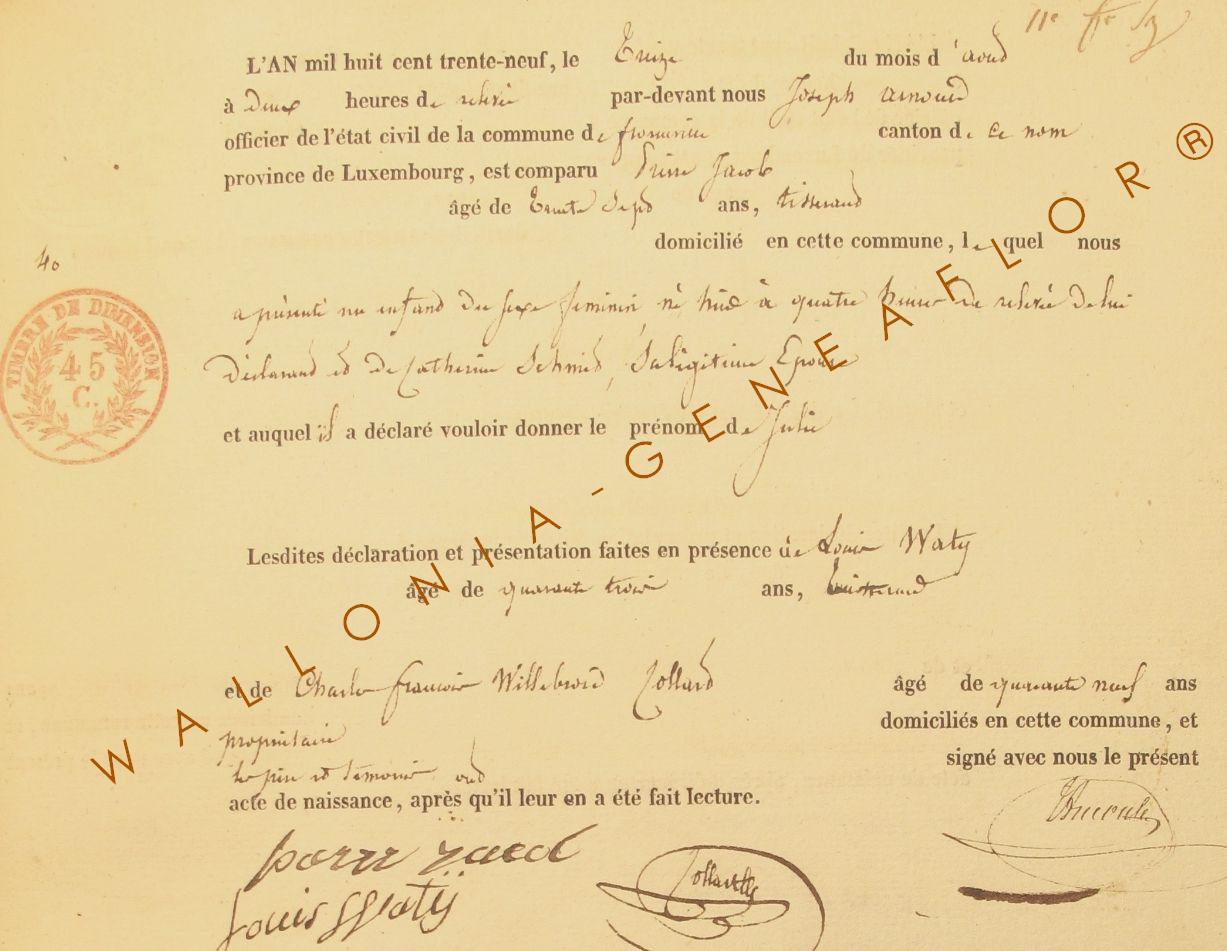 L'AN mil huit cent trente-neuf, le treize du mois d'aout
à deux heures de relevée par-devant nous Joseph Arnould
officier de l'état civil de la commune de canton de ce nom
province de Luxembourg, est comparu Pierre Jacob
âgé de trente sept ans, tisserand
domicilié en cette commune, le quel nous
40
a présenté un enfand du sexe feminin, né hier à quatre heures de relevée de lui
déclarand et de Catherine Schmid, sa légitime Epouse
TIMBRE DE DIMENSION
45
C.
et auquel il a déclaré vouloir donner le prénom de Julie
Lesdites déclaration et présentation faites en présence de Louis Waty
âgé de quarante trois ans,
et de Charles françois Willebrord Collard âgé de quarante neuf ans
propriétaire domiciliés en cette commune, et
le père et témoins ont signé avec nous le présent
acte de naissance, après qu'il leur en a été fait lecture.
Louis Watÿ
WALLONIA-GENEAFLOR®